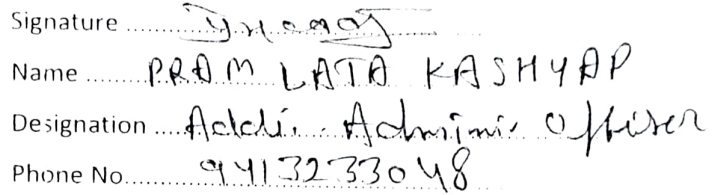 Signature ..........
Name ...... PRAM LATA KASHYAP
Designation .... Addi. Adminis Officer
Phone No. ......... 9413233048